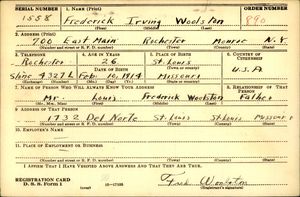 SERIAL NUMBER 1. NAME (Print) ORDER NUMBER
1558 Frederick Irving Woolston 890
(First) (Middle) (Last)
2. ADDRESS (Print)
760 East Main Rochester Monroe N.Y.
(Number and street or R. F. D. number) (Town) (County) (State)
3. TELEPHONE 4. AGE IN YEARS 5. PLACE OF BIRTH 6. COUNTRY OF CITIZENSHIP
Rochester 26 St. Louis
DATE OF BIRTH (Town or county) U.S.A.
Stone 4327L Feb. 10, 1914 Missouri
(Exchange) (Number) (Mo.) (Day) (Yr.) (State or country)
7. NAME OF PERSON WHO WILL ALWAYS KNOW YOUR ADDRESS 8. RELATIONSHIP OF THAT PERSON
Mr. Louis Fredrick Woolston Father
(Mr., Mrs., Miss) (First) (Middle) (Last)
9. ADDRESS OF THAT PERSON
1732 Del Norte St. Louis St. Louis Missouri
(Number and street or R. F. D. number) (Town) (County) (State)
10. EMPLOYER'S NAME
11. PLACE OF EMPLOYMENT OR BUSINESS
(Number and street or R. F. D. number) (Town) (County) (State)
I AFFIRM THAT I HAVE VERIFIED ABOVE ANSWERS AND THAT THEY ARE TRUE.
REGISTRATION CARD
D. S. S. Form 1 Fred Woolston
(Registrant's signature)